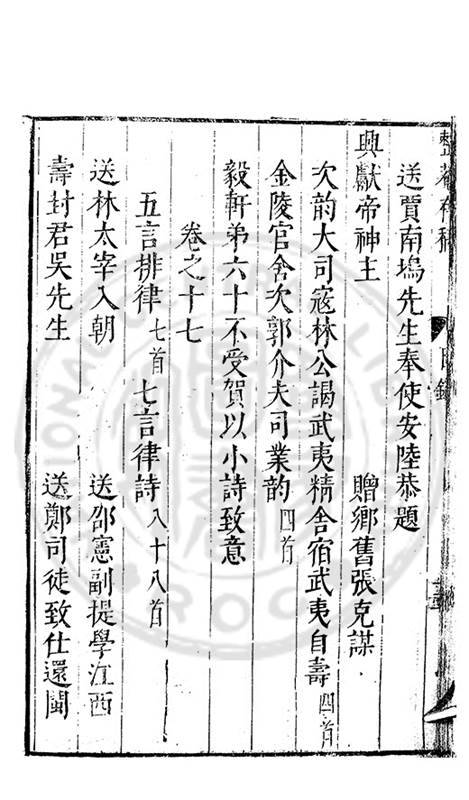 整菴存稿 目錄
送賈南塢先生奉使安陸恭題
興獻帝神主 贈鄉舊張克謀
次韵大司寇林公謁武夷精舍宿武夷自壽四首
金陵官舍次郭介夫司業韵四首
毅軒弟六十不受賀以小詩致意
卷之十七
五言排律七首七言律詩八十八首
送林太宰入朝 送邵憲副提學江西
壽封君吳先生 送鄭司徒致仕還閩